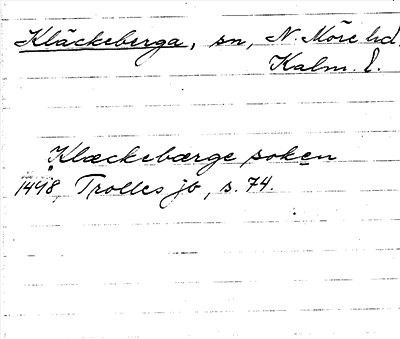 Kläckeberga, sn, N. Möre hd,
Kalm. l.
Klæckebærge soken
1498 Trolles jb, s. 74.